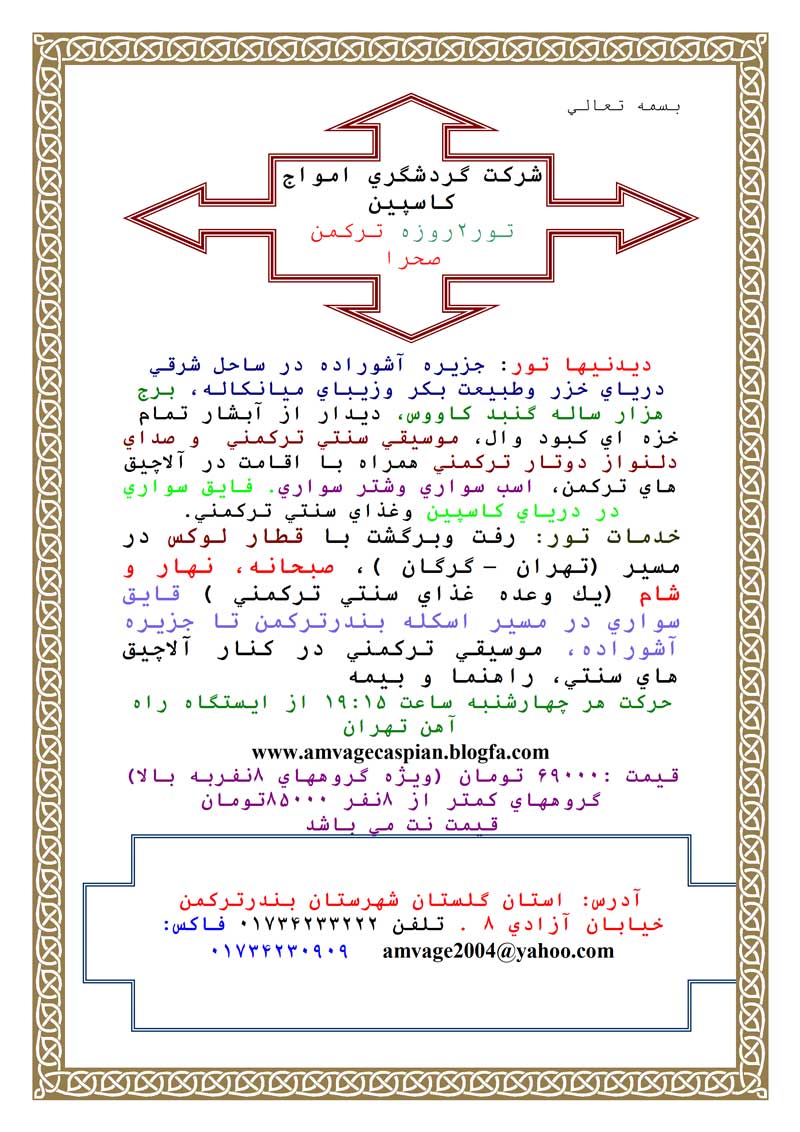 بسمه تعالي
شركت گردشگري امواج
كاسپين
تور۲روزه تركمن
صحرا
ديدنيها تور: جزيره آشوراده در ساحل شرقي
درياي خزر وطبيعت بكر وزيباي ميانكاله، برج
هزار ساله گنبد كاووس، ديدار از آبشار تمام
خزه اي كبود وال، موسيقي سنتي تركمني و صداي
دلنواز دوتار تركمني همراه با اقامت در آلاچيق
هاي تركمن، اسب سواري وشتر سواري. فايق سواري
در درياي كاسپين وغذاي سنتي تركمني.
خدمات تور: رفت وبرگشت با قطار لوكس در
مسير (تهران – گرگان )، صبحانه، نهار و
شام (يك وعده غذاي سنتي تركمني ) قايق
سواري در مسير اسكله بندرتركمن تا جزيره
آشوراده، موسيقي تركمني در كنار آلاچيق
هاي سنتي، راهنما و بيمه
حركت هر چهارشنبه ساعت ۱۹:۱۵ از ايستگاه راه
آهن تهران
www.amvagecaspian.blogfa.com
قيمت :۶۹۰۰۰ تومان (ويژه گروههاي ۸نفربه بالا)
گروههاي كمتر از ۸نفر ۸۵۰۰۰تومان
قيمت نت مي باشد
آدرس: استان گلستان شهرستان بندرتركمن
خيابان آزادي ۸ . تلفن ۰۱۷۳۴۲۳۳۲۲۲ فاكس:
۰۱۷۳۴۲۳۰۹۰۹ amvage2004@yahoo.com